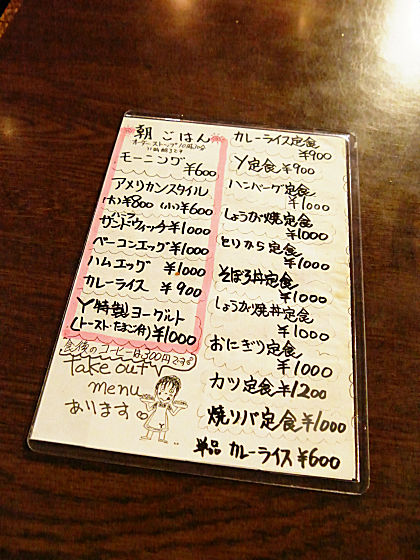 朝ごはん
モーニング
¥600
アメリカンスタイル
(大)¥800 (小)¥600
ハーフ
サンドウィッチ¥1000
ベーコンエッグ¥1000
ハムエッグ ¥1000
カレーライス ¥900
Y特製ヨーグルト
(トースト・たまご付)¥1000
食後のコーヒーは300円です
Take out
menu
あります
カレーライス定食
¥900
Y定食¥900
ハンバーグ定食
¥1000
しょうが焼定食
¥1000
とりから定食
¥1000
そぼろ丼定食
¥1000
しょうが焼丼定食
¥1000
おにぎり定食
¥1000
カツ定食¥1200
焼リバ定食¥1000
単品 カレーライス¥600